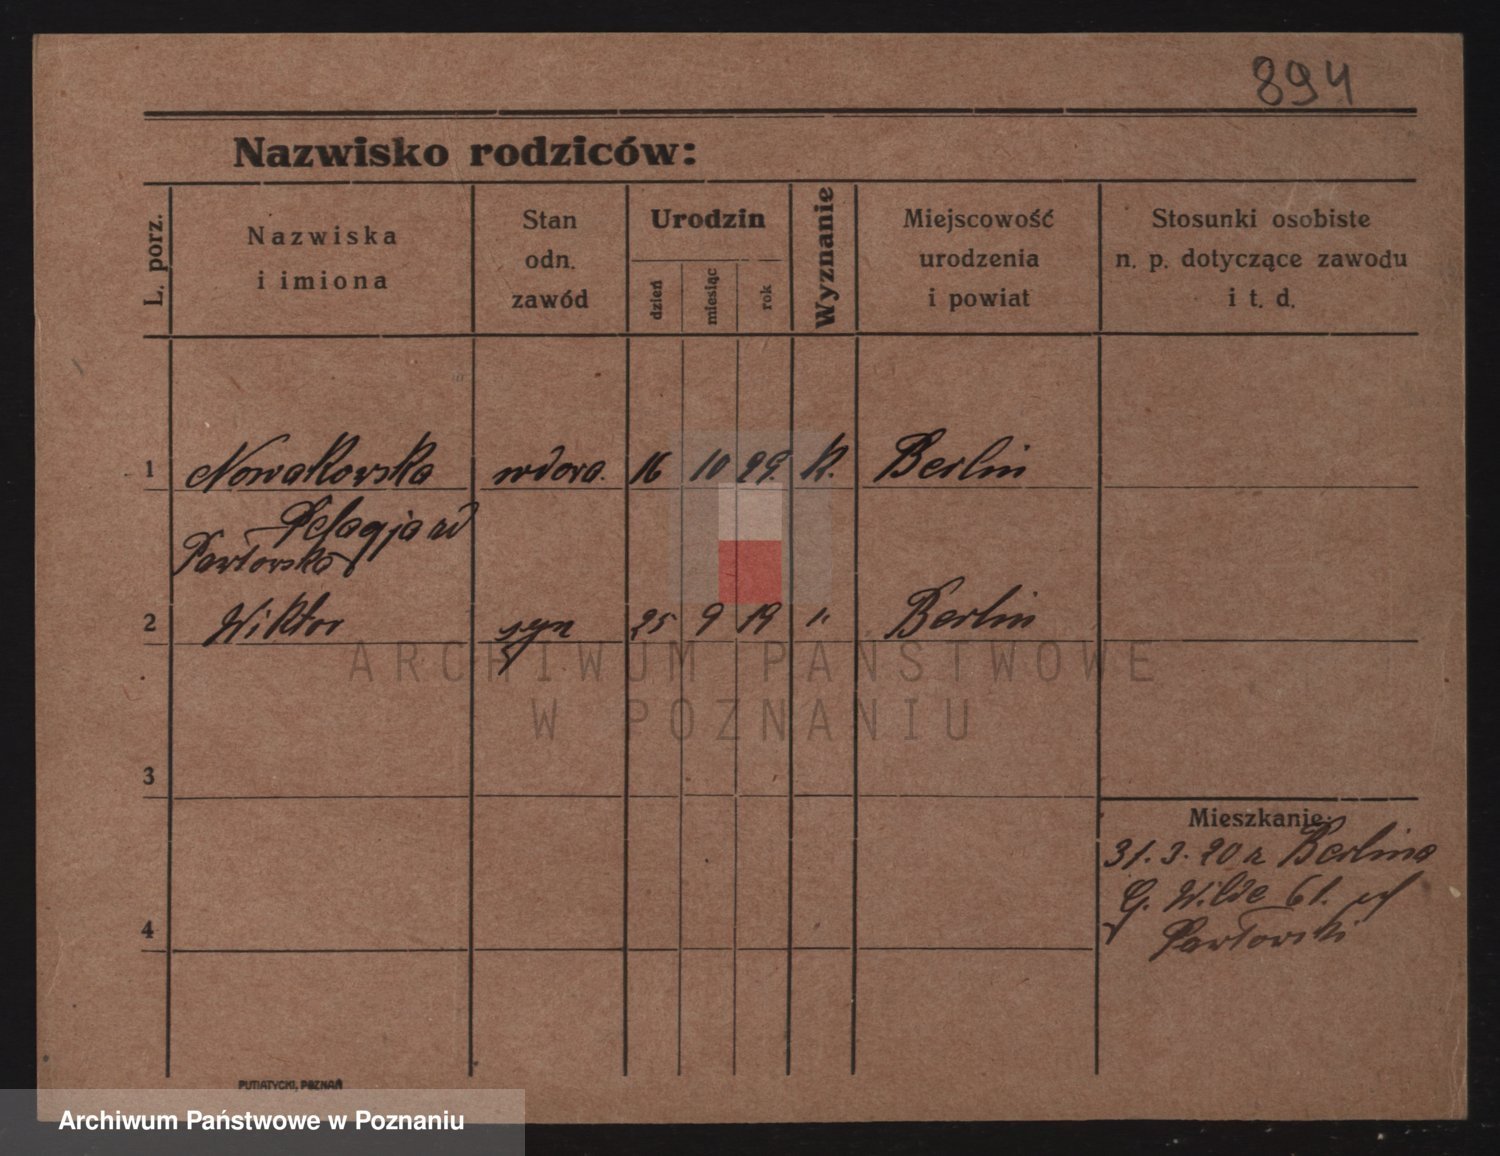 894
Nazwisko rodziców:
L. porz.
Nazwiska
i imiona
Stan
odn.
zawód
Urodzin
dzień
miesiąc
rok
Wyznanie
Miejscowość
urodzenia
i powiat
Stosunki osobiste
n. p. dotyczące zawodu
i t. d.
1 Nowakowska wdowa. 16 10 99. k. Berlin
Pelagja zd
Pawłowska
2 Wiktor syn 25 9 19 ". Berlin
ARCHIWUM PAŃSTWOWE
W POZNANIU
3
Mieszkanie:
31. 3. 20 z Berlina
G. Wilde 61.
Pawłowski
4
PUTIATYCKI, POZNAŃ
Archiwum Państwowe w Poznaniu